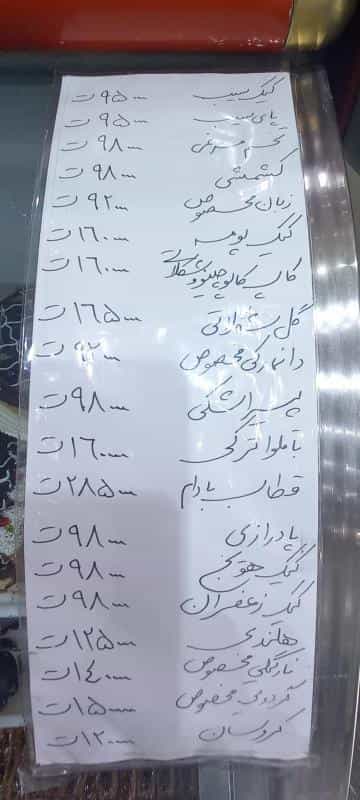 کیک سیب ۹۵۰۰۰ت
پای سیب ۹۵۰۰۰ت
تخم مرغی ۹۸۰۰۰ت
کشمشی ۹۸۰۰۰ت
زبان مخصوص ۹۲۰۰۰ت
کیک بوسه ۱۶۰۰۰۰ت
کاپ کاکائو شکلاتی ۱۶۰۰۰۰ت
گل ۱۶۵۰۰۰ت
دانمارکی مخصوص ۹۲۰۰۰ت
پیراشکی ۹۸۰۰۰ت
باقلوا ترکی ۱۶۰۰۰۰ت
قطاب بادام ۲۸۵۰۰۰ت
پادرازی ۹۸۰۰۰ت
کیک هویج ۹۸۰۰۰ت
کیک زعفران ۹۸۰۰۰ت
هلندی ۱۲۵۰۰۰ت
نارگیلی مخصوص ۱۴۰۰۰۰ت
گردویی مخصوص ۱۵۰۰۰۰ت
کروسان ۱۲۰۰۰۰ت